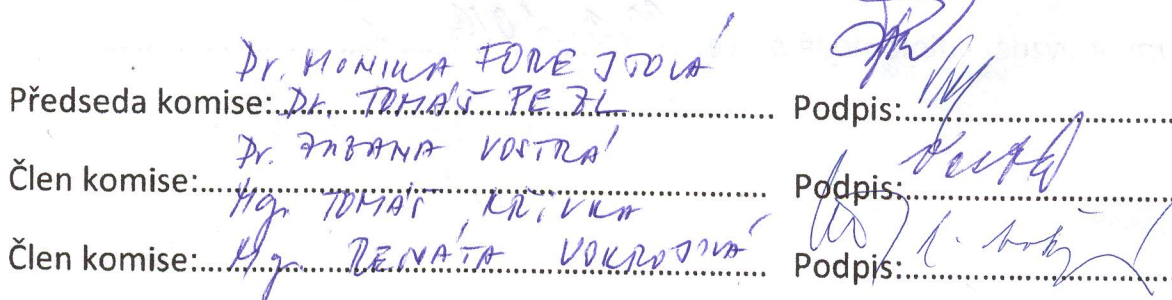 Dr. MONIKA FOREJTOVÁ
Předseda komise: Dr. TOMÁŠ PEZL Podpis:
Dr. ZUZANA VOSTRÁ
Člen komise: Podpis:
Mgr. TOMÁŠ KŘIVKA
Člen komise: Mgr. RENÁTA VOKROJOVÁ Podpis: